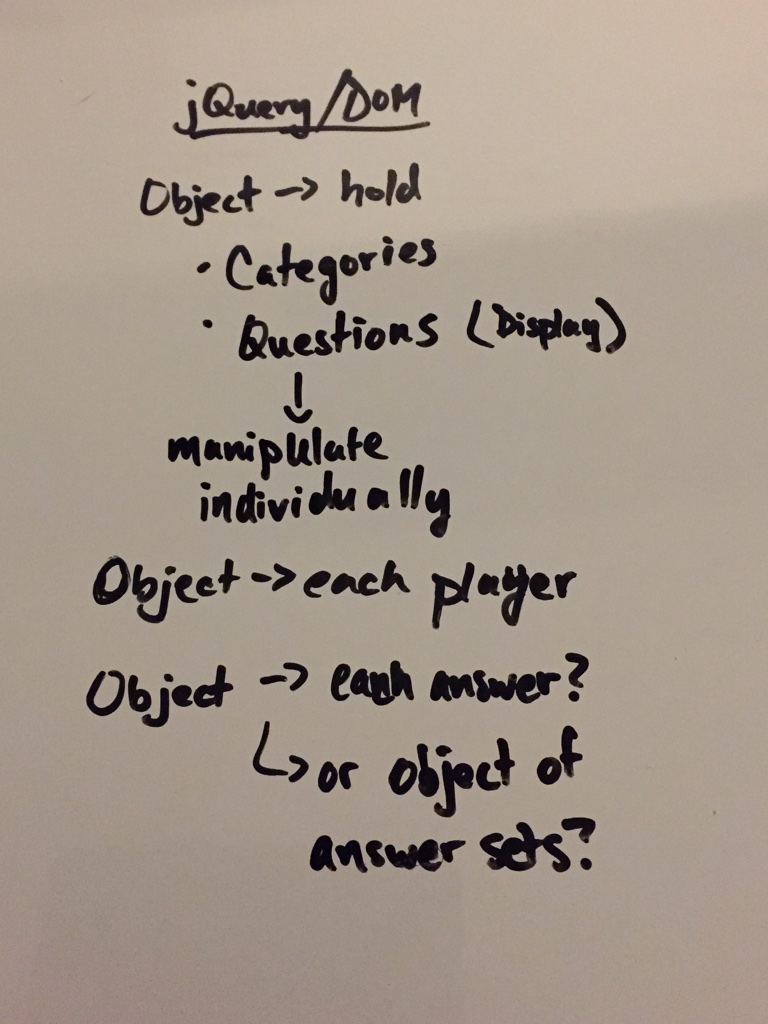 jQuery/DOM
Object -> hold
• Categories
• Questions (Display)
↓
manipulate
individually
Object -> each player
Object -> each answer?
↳ or object of
answer sets?